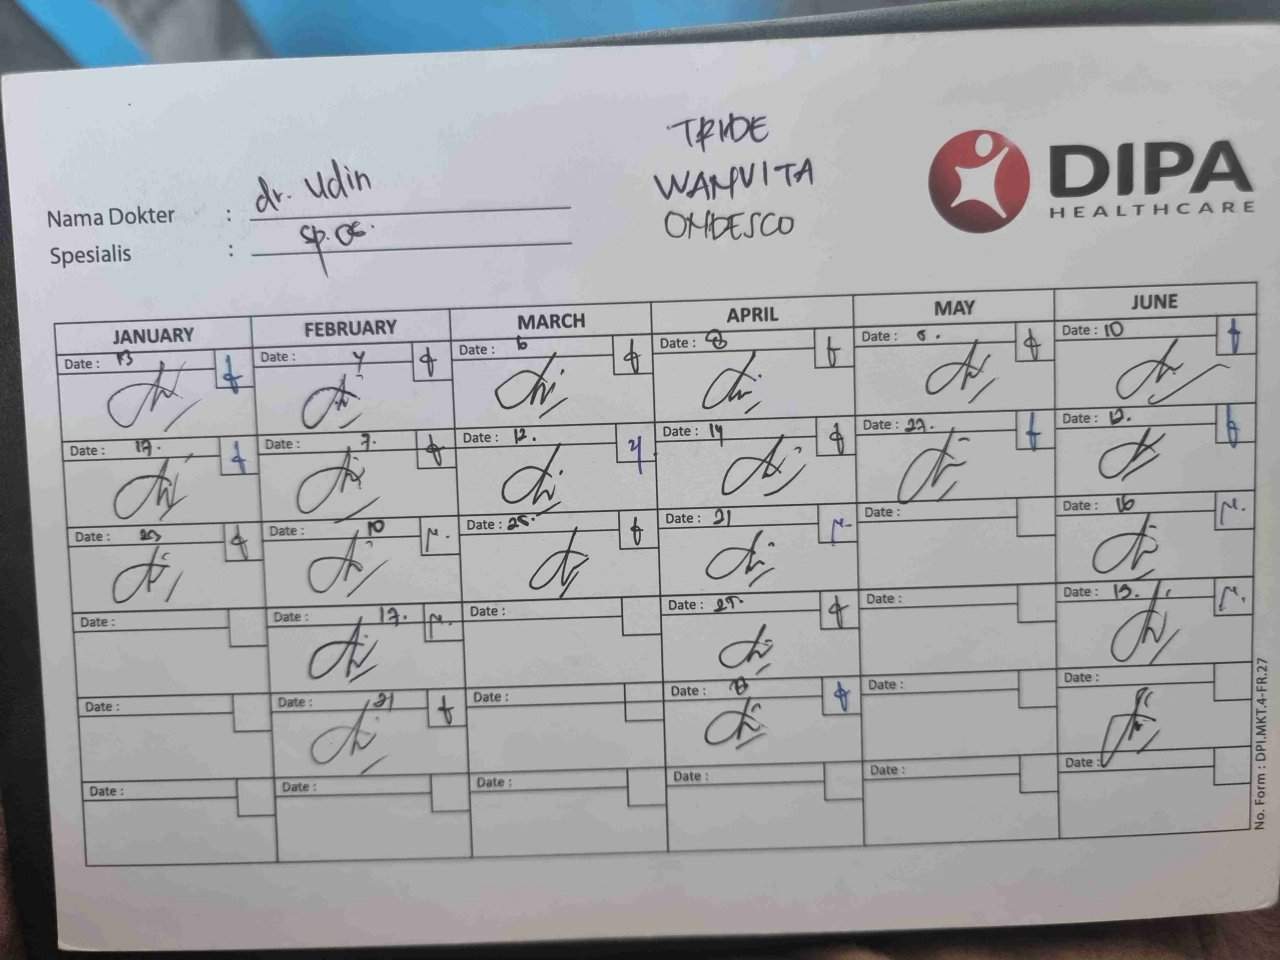 TRIDE
WAMVITA
ONDESCO
DIPA
HEALTHCARE
Nama Dokter : dr. Udin
Spesialis : Sp.OG.
JANUARY FEBRUARY MARCH APRIL MAY JUNE
Date : 13 Date : 4 Date : 6 Date : 8 Date : 8. Date : 10
Date : 17. Date : 7. Date : 12. Date : 14 Date : 27. Date : 12.
Date : 23 Date : 10 Date : 25. Date : 21 Date : Date : 16
Date : Date : 17. Date : Date : 25. Date : Date : 19.
Date : Date : 21 Date : Date : Date : Date :
Date : Date : Date : Date : Date : Date :
No. Form : DPI.MKT.4-FR.27